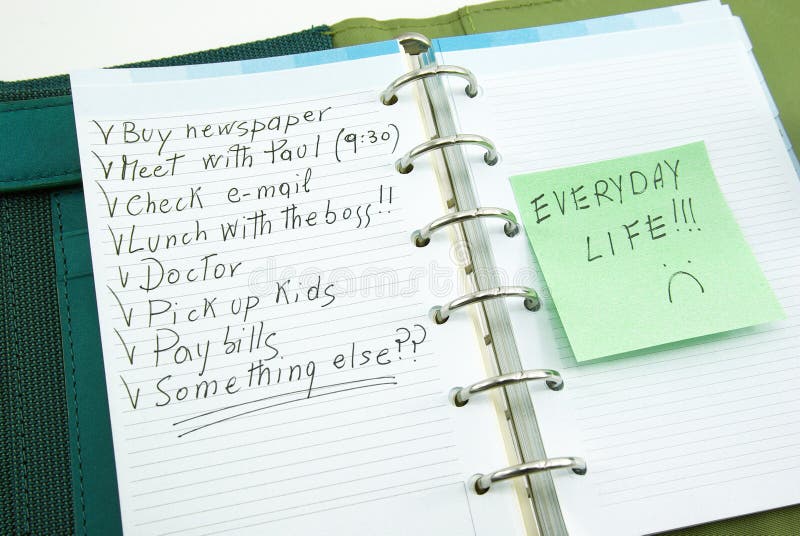 √ Buy newspaper
√ Meet with Paul (9:30)
√ Check e-mail
√ Lunch with the boss!!
√ Doctor
√ Pick up Kids
√ Pay bills
√ Something else??
EVERYDAY
LIFE!!!
:(
dreamstime